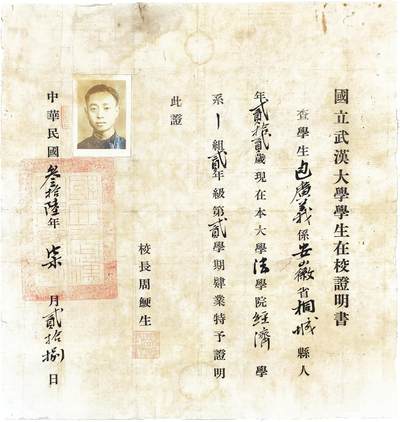 國立武漢大學學生在校證明書
查學生包廣義係安徽省桐城縣人
年貳拾貳歲現在本大學法學院經濟學
系一組貳年級第貳學期肄業特予證明
此證
校長周鯁生
中華民國叁拾陸年柒月貳拾捌日